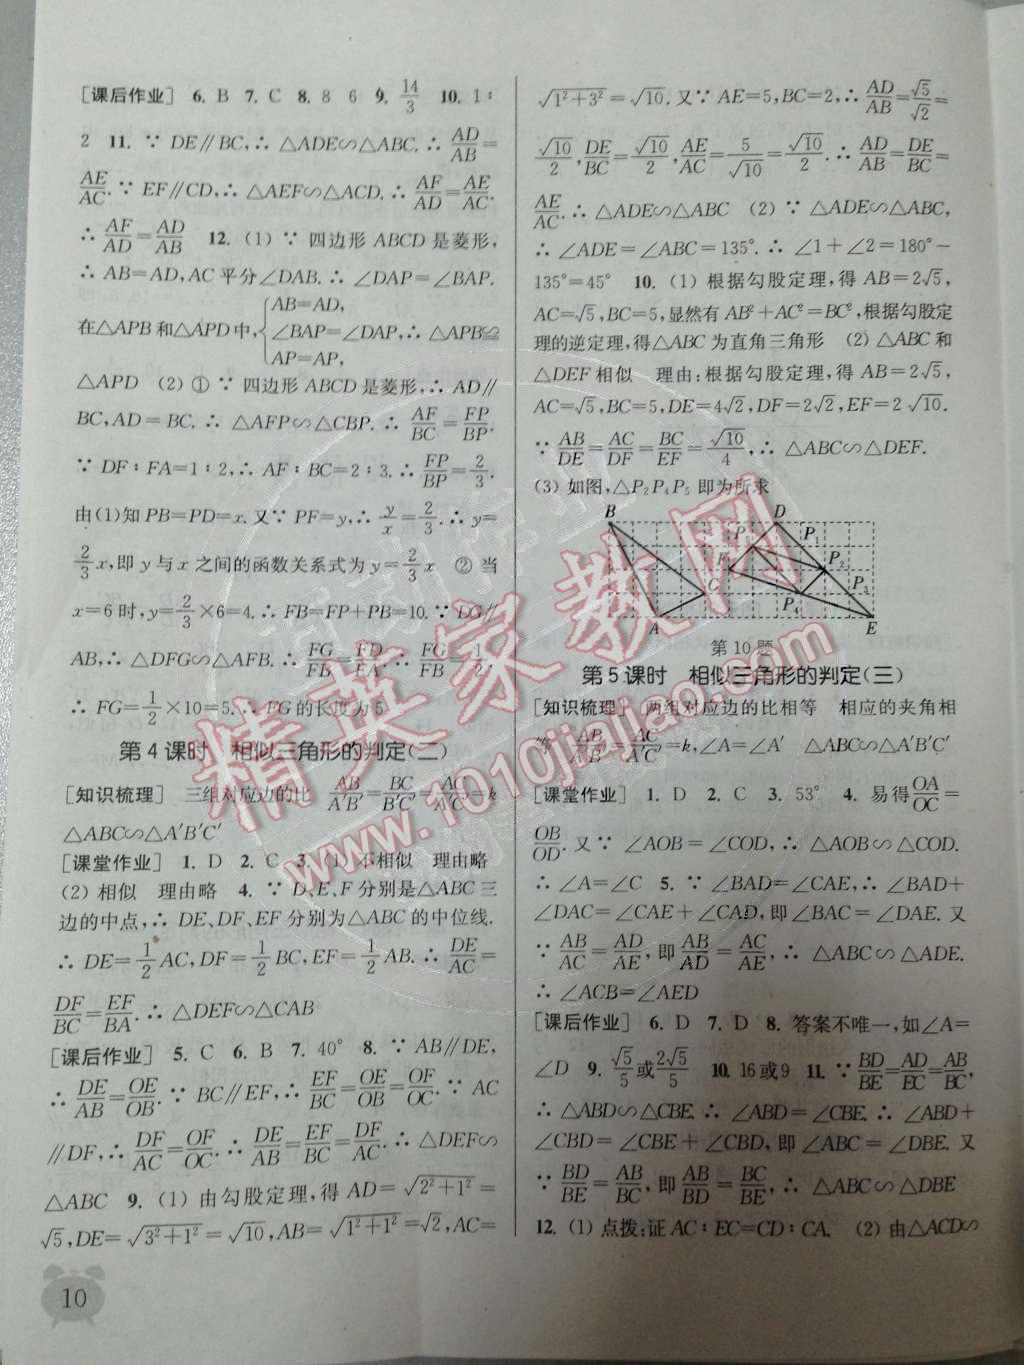 [课后作业] 6. B 7. C 8. 8 6 9. 14/3 10. 1∶
2 11. ∵ DE∥BC,∴ △ADE∽△ABC.∴ AD/AB=
AE/AC.∵ EF∥CD,∴ △AEF∽△ACD.∴ AF/AD=AE/AC.
∴ AF/AD=AD/AB 12. (1) ∵ 四边形 ABCD 是菱形,
∴ AB=AD,AC 平分∠DAB.∴ ∠DAP=∠BAP.
在△APB 和△APD 中,{AB=AD,
∠BAP=∠DAP,∴ △APB≌
AP=AP,
△APD (2) ① ∵ 四边形 ABCD 是菱形,∴ AD∥
BC,AD=BC.∴ △AFP∽△CBP.∴ AF/BC=FP/BP.
∵ DF∶FA=1∶2,∴ AF∶BC=2∶3.∴ FP/BP=2/3.
由(1)知 PB=PD=x.又∵ PF=y,∴ y/x=2/3.∴ y=
2/3x,即 y 与 x 之间的函数关系式为 y=2/3x ② 当
x=6 时,y=2/3×6=4.∴ FB=FP+PB=10.∵ DG∥
AB,∴ △DFG∽△AFB.∴ FG/FB=FD/FA.∴ FG/FB=1/2
∴ FG=1/2×10=5.∴ FG 的长度为 5
第 4 课时 相似三角形的判定(二)
[知识梳理] 三组对应边的比 AB/A′B′=BC/B′C′=AC/A′C′=k
△ABC∽△A′B′C′
[课堂作业] 1. D 2. C 3. (1) 不相似 理由略
(2) 相似 理由略 4. ∵ D、E、F 分别是△ABC 三
边的中点,∴ DE、DF、EF 分别为△ABC 的中位线.
∴ DE=1/2AC,DF=1/2BC,EF=1/2AB.∴ DE/AC=
DF/BC=EF/BA.∴ △DEF∽△CAB
[课后作业] 5. C 6. B 7. 40° 8. ∵ AB∥DE,
∴ DE/AB=OE/OB.∵ BC∥EF,∴ EF/BC=OE/OB=OF/OC.∵ AC
∥DF,∴ DF/AC=OF/OC.∴ DE/AB=EF/BC=DF/AC.∴ △DEF∽
△ABC 9. (1) 由勾股定理,得 AD=√(2²+1²)=
√5,DE=√(3²+1²)=√10,AB=√(1²+1²)=√2,AC=
10
√(1²+3²)=√10.又∵ AE=5,BC=2,∴ AD/AB=√5/√2=
√10/2,DE/BC=√10/2,AE/AC=5/√10=√10/2.∴ AD/AB=DE/BC=
AE/AC.∴ △ADE∽△ABC (2) ∵ △ADE∽△ABC,
∴ ∠ADE=∠ABC=135°.∴ ∠1+∠2=180°−
135°=45° 10. (1) 根据勾股定理,得 AB=2√5,
AC=√5,BC=5,显然有 AB²+AC²=BC²,根据勾股定
理的逆定理,得△ABC 为直角三角形 (2) △ABC 和
△DEF 相似 理由:根据勾股定理,得 AB=2√5,
AC=√5,BC=5,DE=4√2,DF=2√2,EF=2√10.
∵ AB/DE=AC/DF=BC/EF=√10/4,∴ △ABC∽△DEF.
(3) 如图,△P₂P₄P₅ 即为所求
B D
P₁
P₂
F
C
P₃
P₄
A E
第 10 题
第 5 课时 相似三角形的判定(三)
[知识梳理] 两组对应边的比相等 相应的夹角相
等 AB/A′B′=AC/A′C′=k,∠A=∠A′ △ABC∽△A′B′C′
[课堂作业] 1. D 2. C 3. 53° 4. 易得OA/OC=
OB/OD.又∵ ∠AOB=∠COD,∴ △AOB∽△COD.
∴ ∠A=∠C 5. ∵ ∠BAD=∠CAE,∴ ∠BAD+
∠DAC=∠CAE+∠CAD,即∠BAC=∠DAE.又
∵ AB/AC=AD/AE,即AB/AD=AC/AE,∴ △ABC∽△ADE.
∴ ∠ACB=∠AED
[课后作业] 6. D 7. D 8. 答案不唯一,如∠A=
∠D 9. √5/5或2√5/5 10. 16或9 11. ∵BD/BE=AD/EC=AB/BC,
∴ △ABD∽△CBE.∴ ∠ABD=∠CBE.∴ ∠ABD+
∠CBD=∠CBE+∠CBD,即∠ABC=∠DBE.又
∵ BD/BE=AB/BC,即AB/BD=BC/BE,∴ △ABC∽△DBE
12. (1) 点拨:证 AC∶EC=CD∶CA. (2) 由△ACD∽
精英家教网
www.1010jiajiao.com